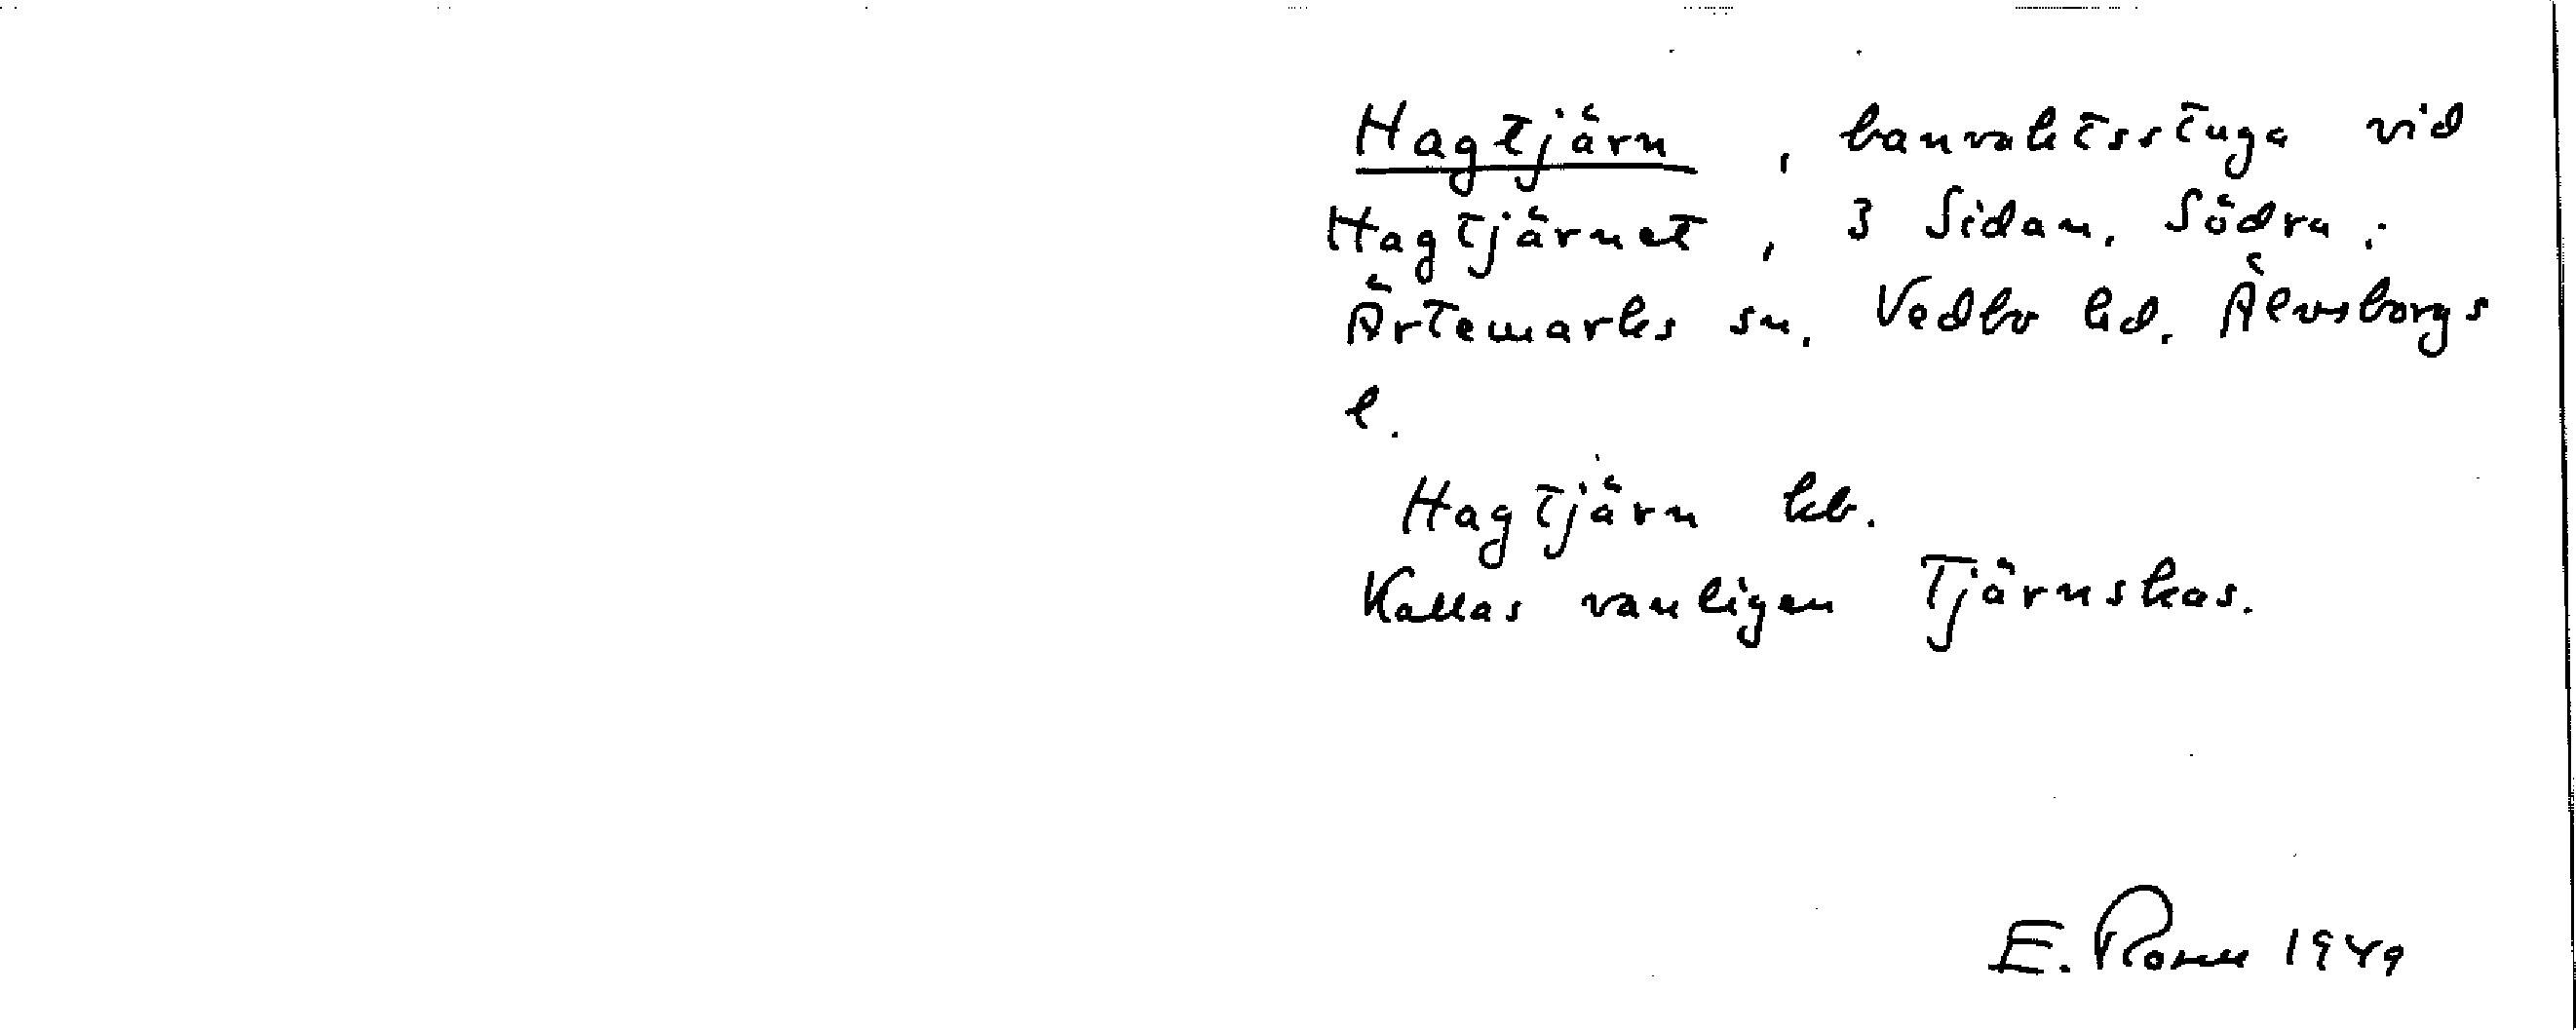 Hagtjärn, banvaktsstuga vid
Hagtjärnet, 3 Sidan. Södra.
Ärtemarks sn. Vedbo hd. Älvsborgs
l.
Hagtjärn kb.
Kallas vanligen Tjärnskas.
E. 1949